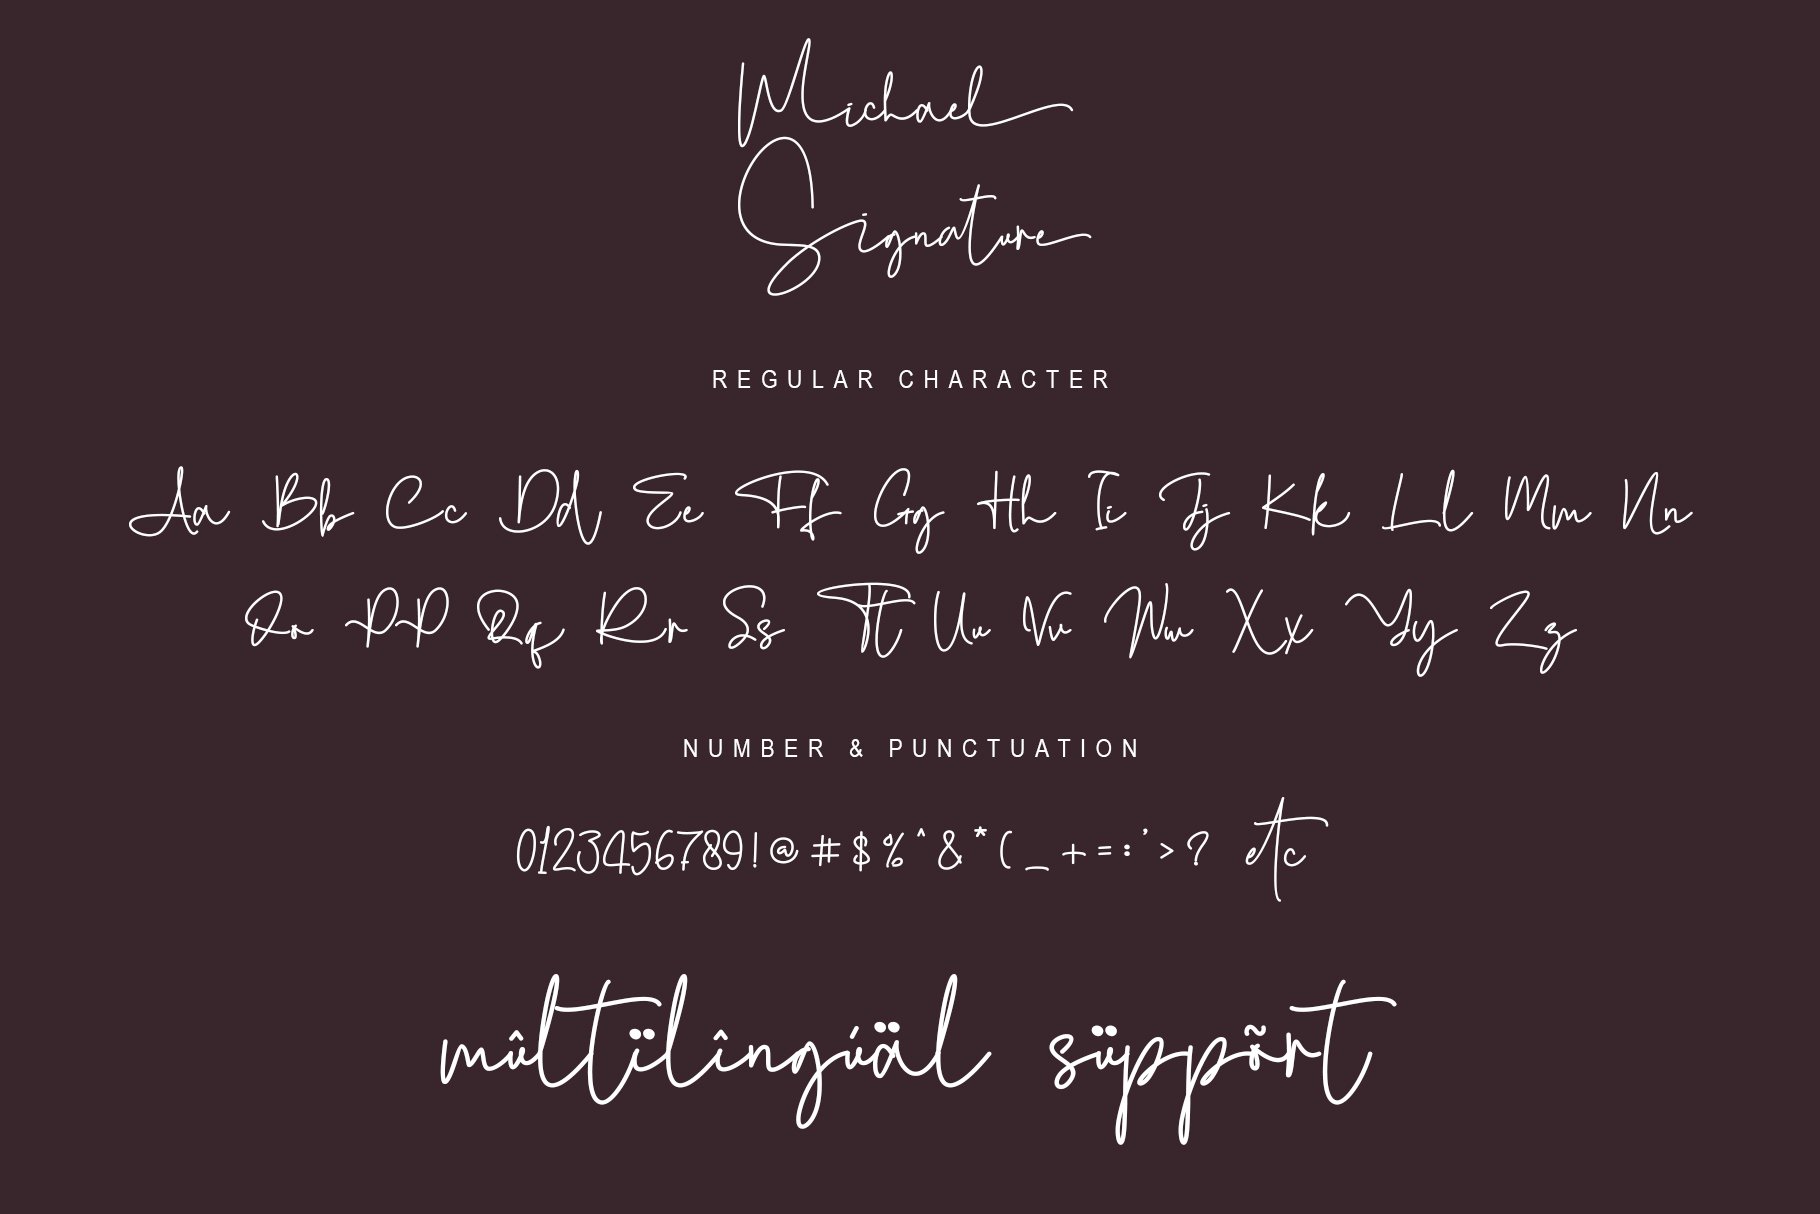 Michael
Signature
REGULAR CHARACTER
Aa Bb Cc Dd Ee Ff Gg Hh Ii Jj Kk Ll Mm Nn
Oo PP Qq Rr Ss Tt Uu Vv Ww Xx Yy Zz
NUMBER & PUNCTUATION
0123456789!@#$%^&*(_+=:'>? etc
mûltïlîngúäl süppõrt